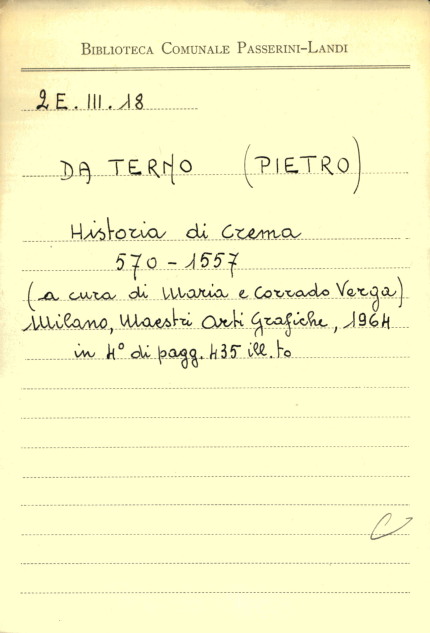 BIBLIOTECA COMUNALE PASSERINI-LANDI
2E.III.18
DA TERNO (PIETRO)
Historia di Crema
570-1557
(a cura di Maria e Corrado Verga)
Milano, Maestri Arti Grafiche, 1964
in 4° di pagg. 435 ill.to
C